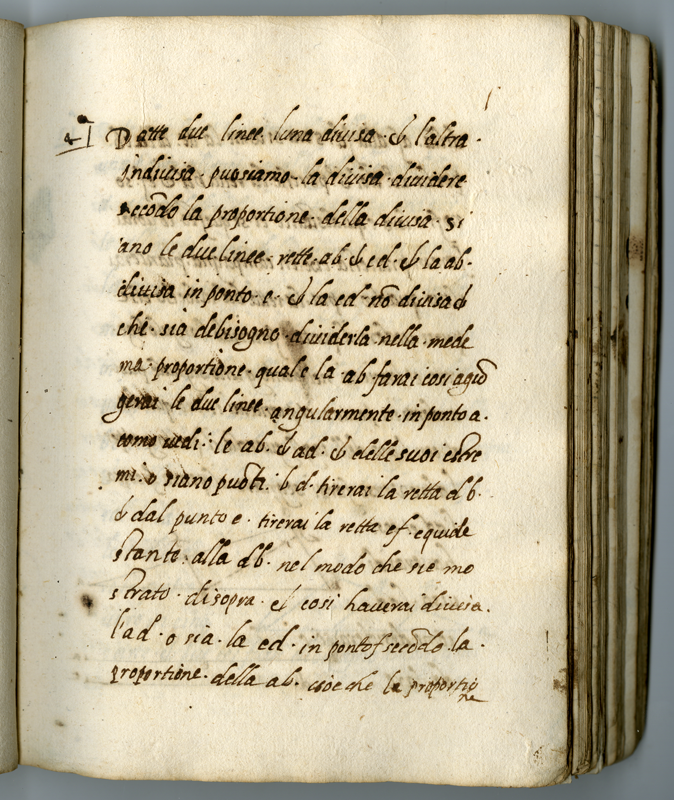 41 Datte due linee luna diuisa & l'altra
indiuisa puosiamo la diuisa diuidere
secōdo la proportione della diuisa si
ano le due linee rette ab & cd & la ab
diuisa in ponto e & la cd nō diuisa &
che sia debisogno diuiderla nella mede
ma proportione qual e la ab farai cosi agiō
gerai le due linee angularmente in ponto a.
como uedi: le ab. & ad. & delle suoi estre
mi o siano puōti b d. tirerai la retta db.
& dal punto e tirerai la retta ef equide
stante alla db. nel modo che sie mo
strato disopra et cosi hauerai diuisa.
l'ad o sia la cd in ponto f secōdo la
proportione della ab. cioe che la proportio
ne